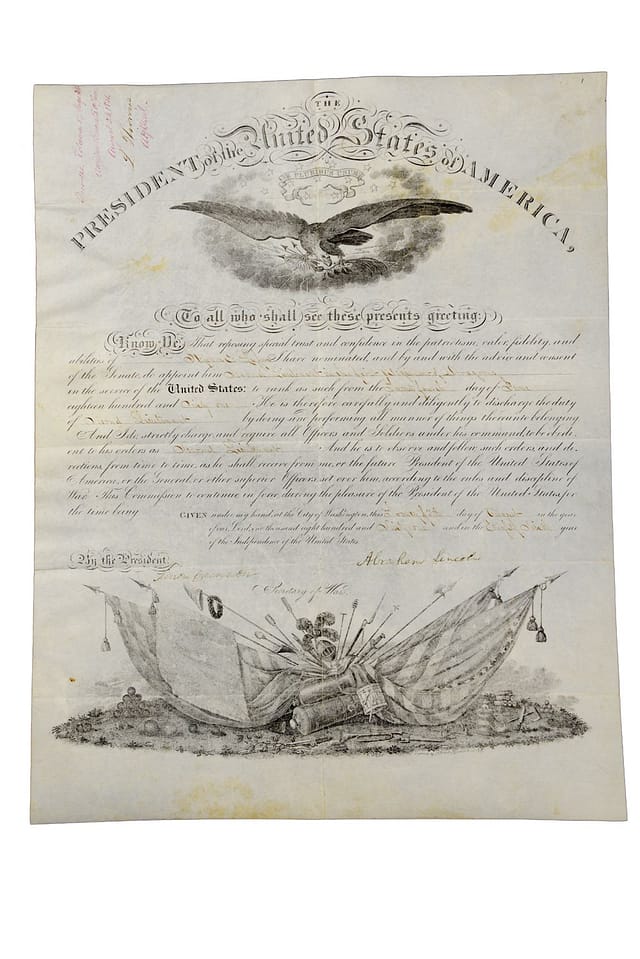 THE
PRESIDENT of the United States of AMERICA,
E PLURIBUS UNUM
To all who shall see these presents greeting:
Know Ye, That reposing special trust and confidence in the patriotism, valor, fidelity, and
abilities of I have nominated, and by and with the advice and consent
of the Senate, do appoint him
in the service of the United States: to rank as such from the day of June
eighteen hundred and sixty one He is therefore carefully and diligently to discharge the duty
of Second Lieutenant by doing and performing all manner of things thereunto belonging.
And I do strictly charge, and require all Officers and Soldiers under his command, to be obedi-
ent to his orders as Second Lieutenant And he is to observe and follow such orders, and di-
rections, from time to time, as he shall receive from me, or the future President of the United States of
America, or the General, or other superior Officers set over him, according to the rules and discipline of
War. This Commission to continue in force during the pleasure of the President of the United States, for
the time being.
GIVEN under my hand, at the City of Washington, this day of August in the year
of our Lord, one thousand eight hundred and and in the Eighty Sixth year
of the Independence of the United States.
By the President,
Abraham Lincoln
Simon Cameron
Secretary of War.